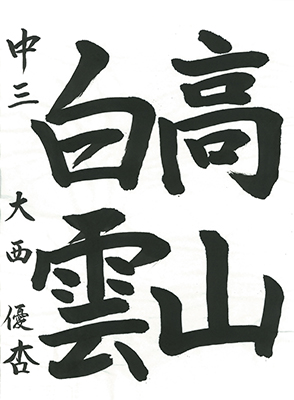 高山
白雲
中三 大西優杏